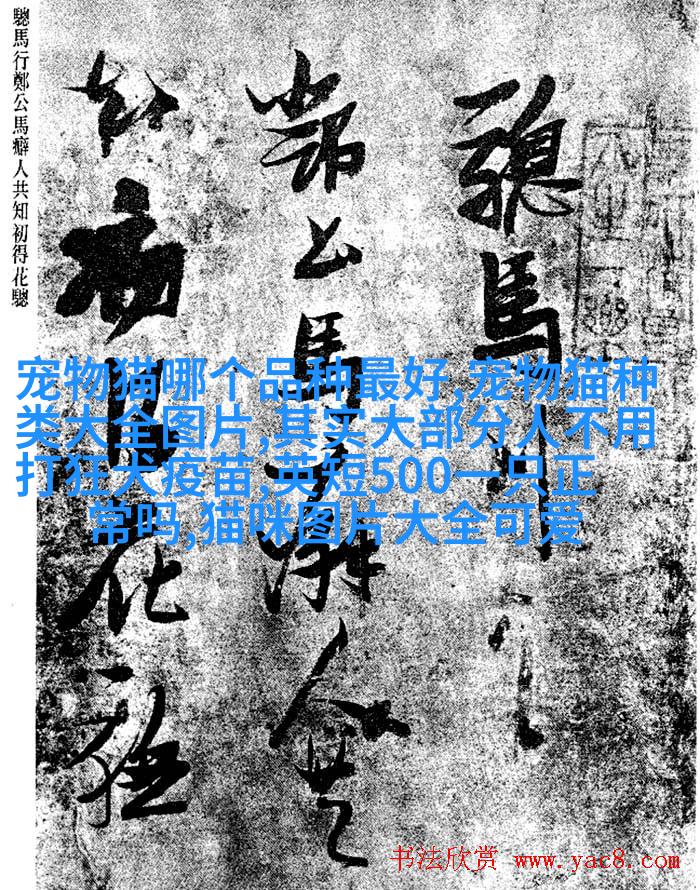 驄馬行鄭公馬癖人共知初得花驄
驄馬行
鄭公馬癖人共
知初得花驄
宠物猫哪个品种最好,宠物猫种
类大全图片,其实大部分人不用
打狂犬疫苗,英短500一只正
常吗,猫咪图片大全可爱
书法欣赏 www.yac8.com